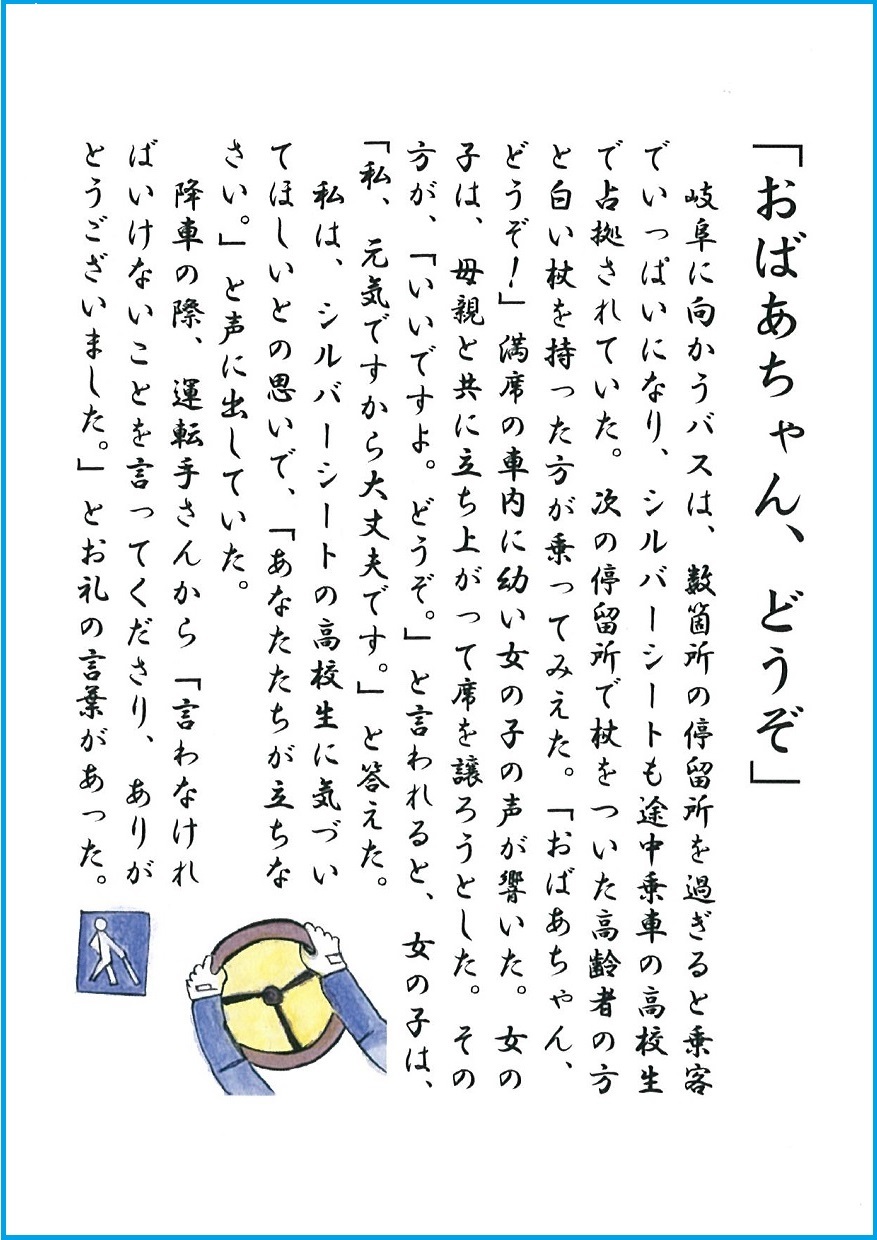 「おばあちゃん、どうぞ」
岐阜に向かうバスは、数箇所の停留所を過ぎると乗客
でいっぱいになり、シルバーシートも途中乗車の高校生
で占拠されていた。次の停留所で杖をついた高齢者の方
と白い杖を持った方が乗ってみえた。「おばあちゃん、
どうぞ!」満席の車内に幼い女の子の声が響いた。女の
子は、母親と共に立ち上がって席を譲ろうとした。その
方が、「いいですよ。どうぞ。」と言われると、女の子は、
「私、元気ですから大丈夫です。」と答えた。
私は、シルバーシートの高校生に気づい
てほしいとの思いで、「あなたたちが立ちな
さい。」と声に出していた。
降車の際、運転手さんから「言わなけれ
ばいけないことを言ってくださり、ありが
とうございました。」とお礼の言葉があった。